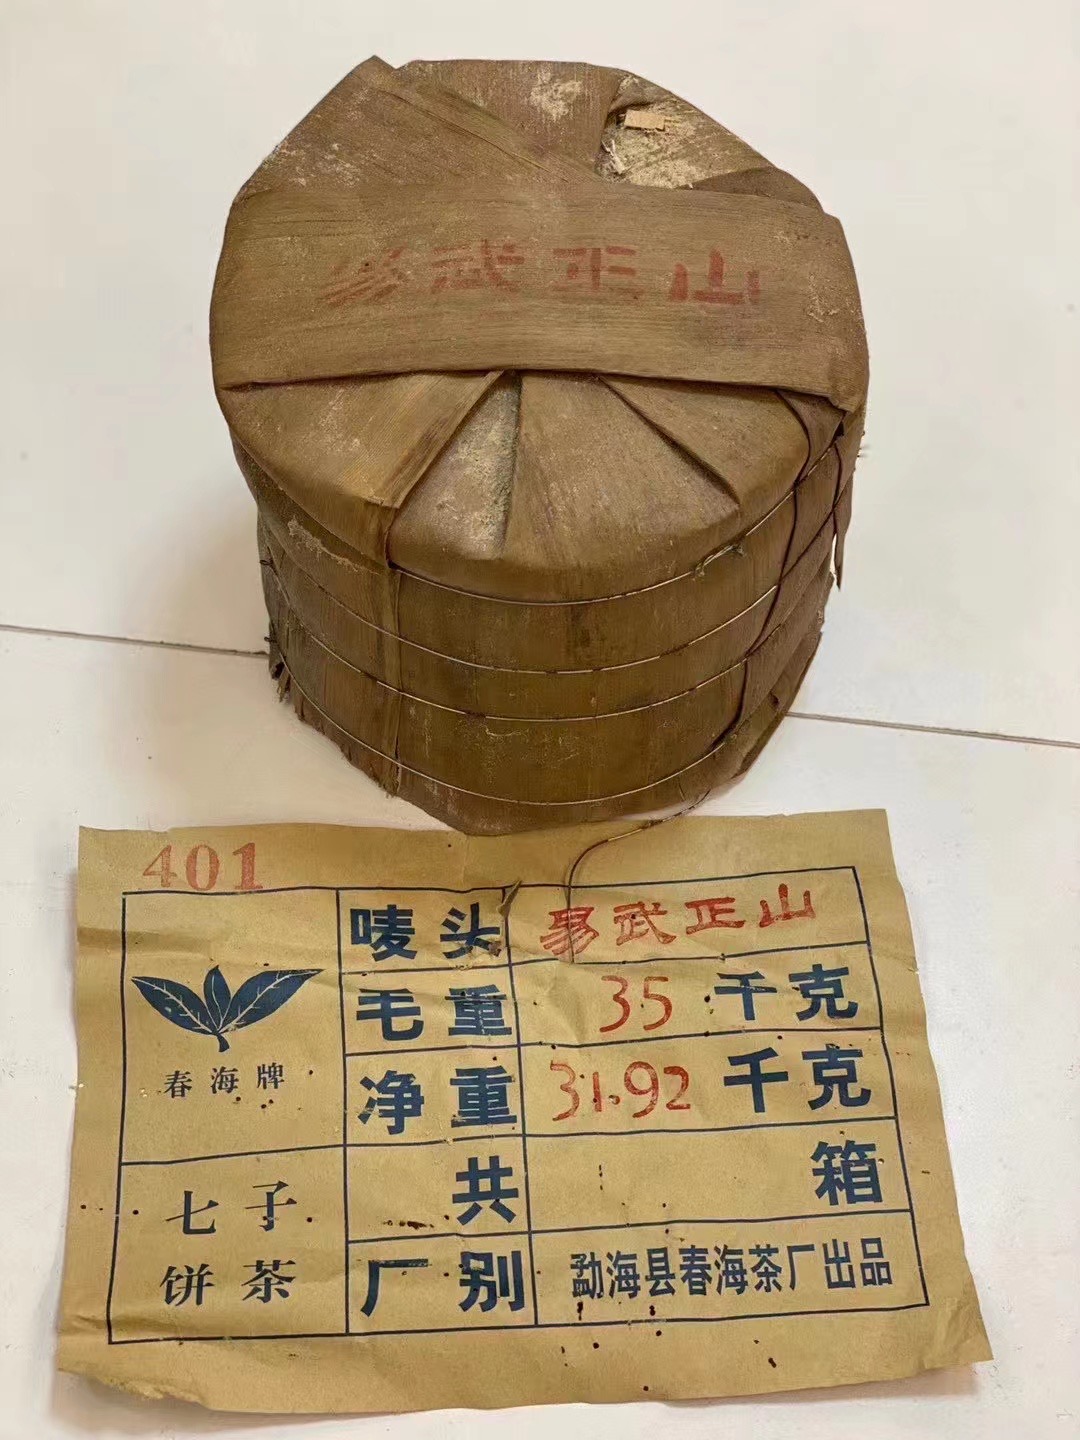 易武正山
401
唛头 易武正山
毛重 35 千克
春海牌
净重 31.92 千克
共 箱
七子
饼茶
厂别 勐海县春海茶厂出品